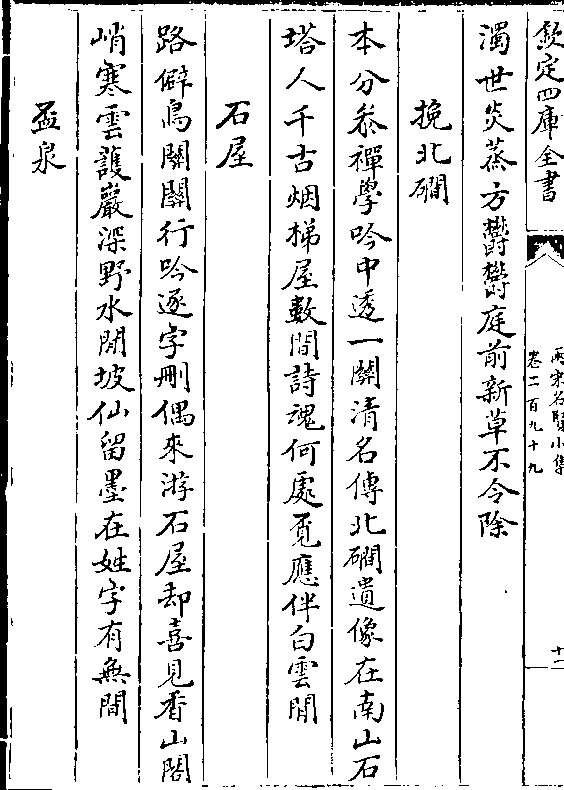 欽定四庫全書
兩宋名賢小集
卷二百九十九
十一
濁世炎蒸方欝欝庭前新草不令除
挽北磵
本分叅禪學吟中透一關清名傳北磵遺像在南山石
塔人千古烟梯屋數間詩魂何處覔應伴白雲閒
石屋
路僻鳥關關行吟逐字刪偶來游石屋却喜見香山閣
峭寒雲護巖深野水閒坡仙留墨在姓字有無間
盃泉